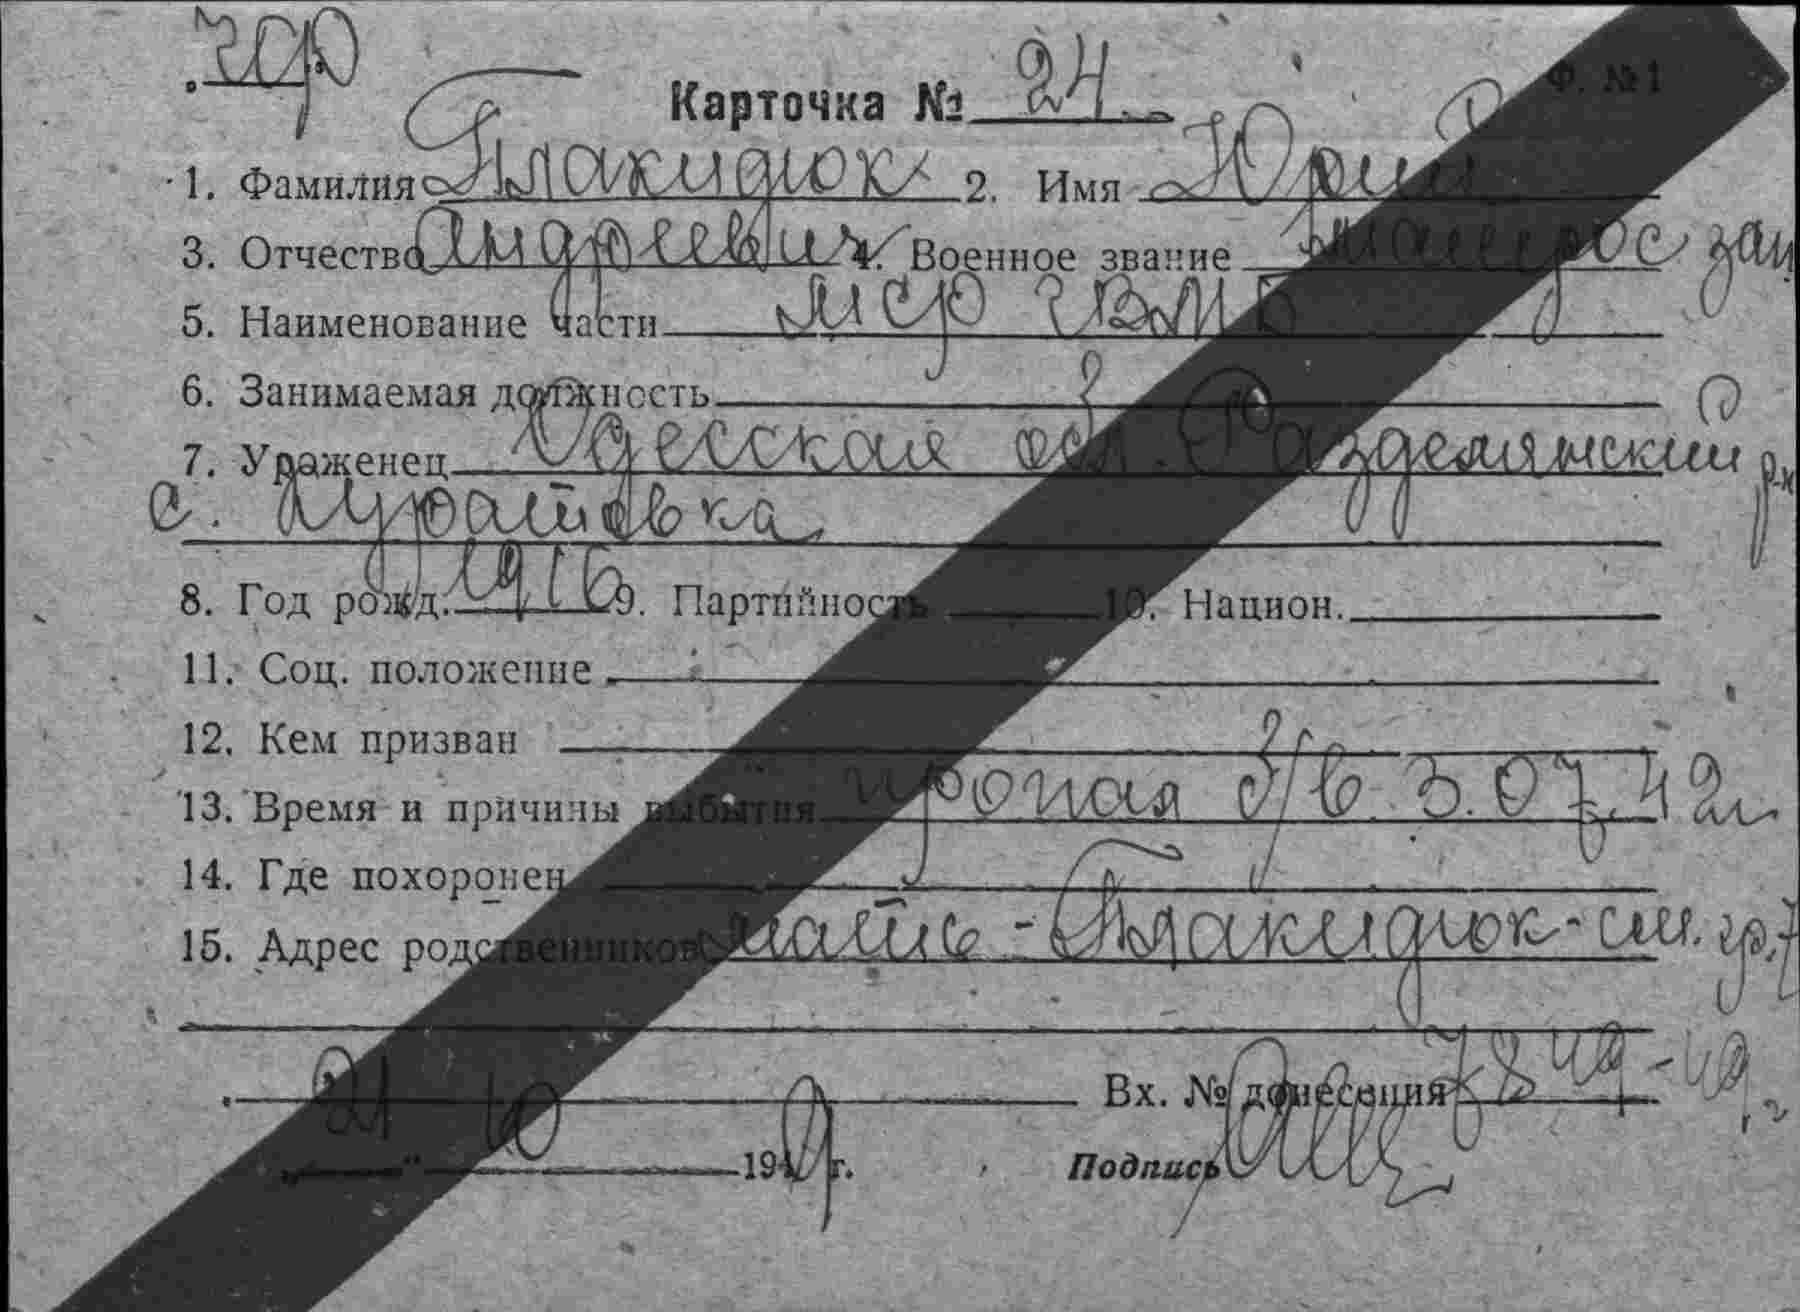 чф
Карточка № 24
Ф. № 1
1. Фамилия Плакидюк 2. Имя Юрий
3. Отчество Андреевич 4. Военное звание матрос зап
5. Наименование части
6. Занимаемая должность
7. Уроженец Одесская обл. Разделянский р-н
с.
8. Год рожд. 1916 9. Партийность 10. Национ.
11. Соц. положение
12. Кем призван
13. Время и причины выбытия пропал б/в 3.07.42г
14. Где похоронен
15. Адрес родственников мать - Плакидюк - см. гр. 7
Вх. № донесения
21 10 194 г. Подпись